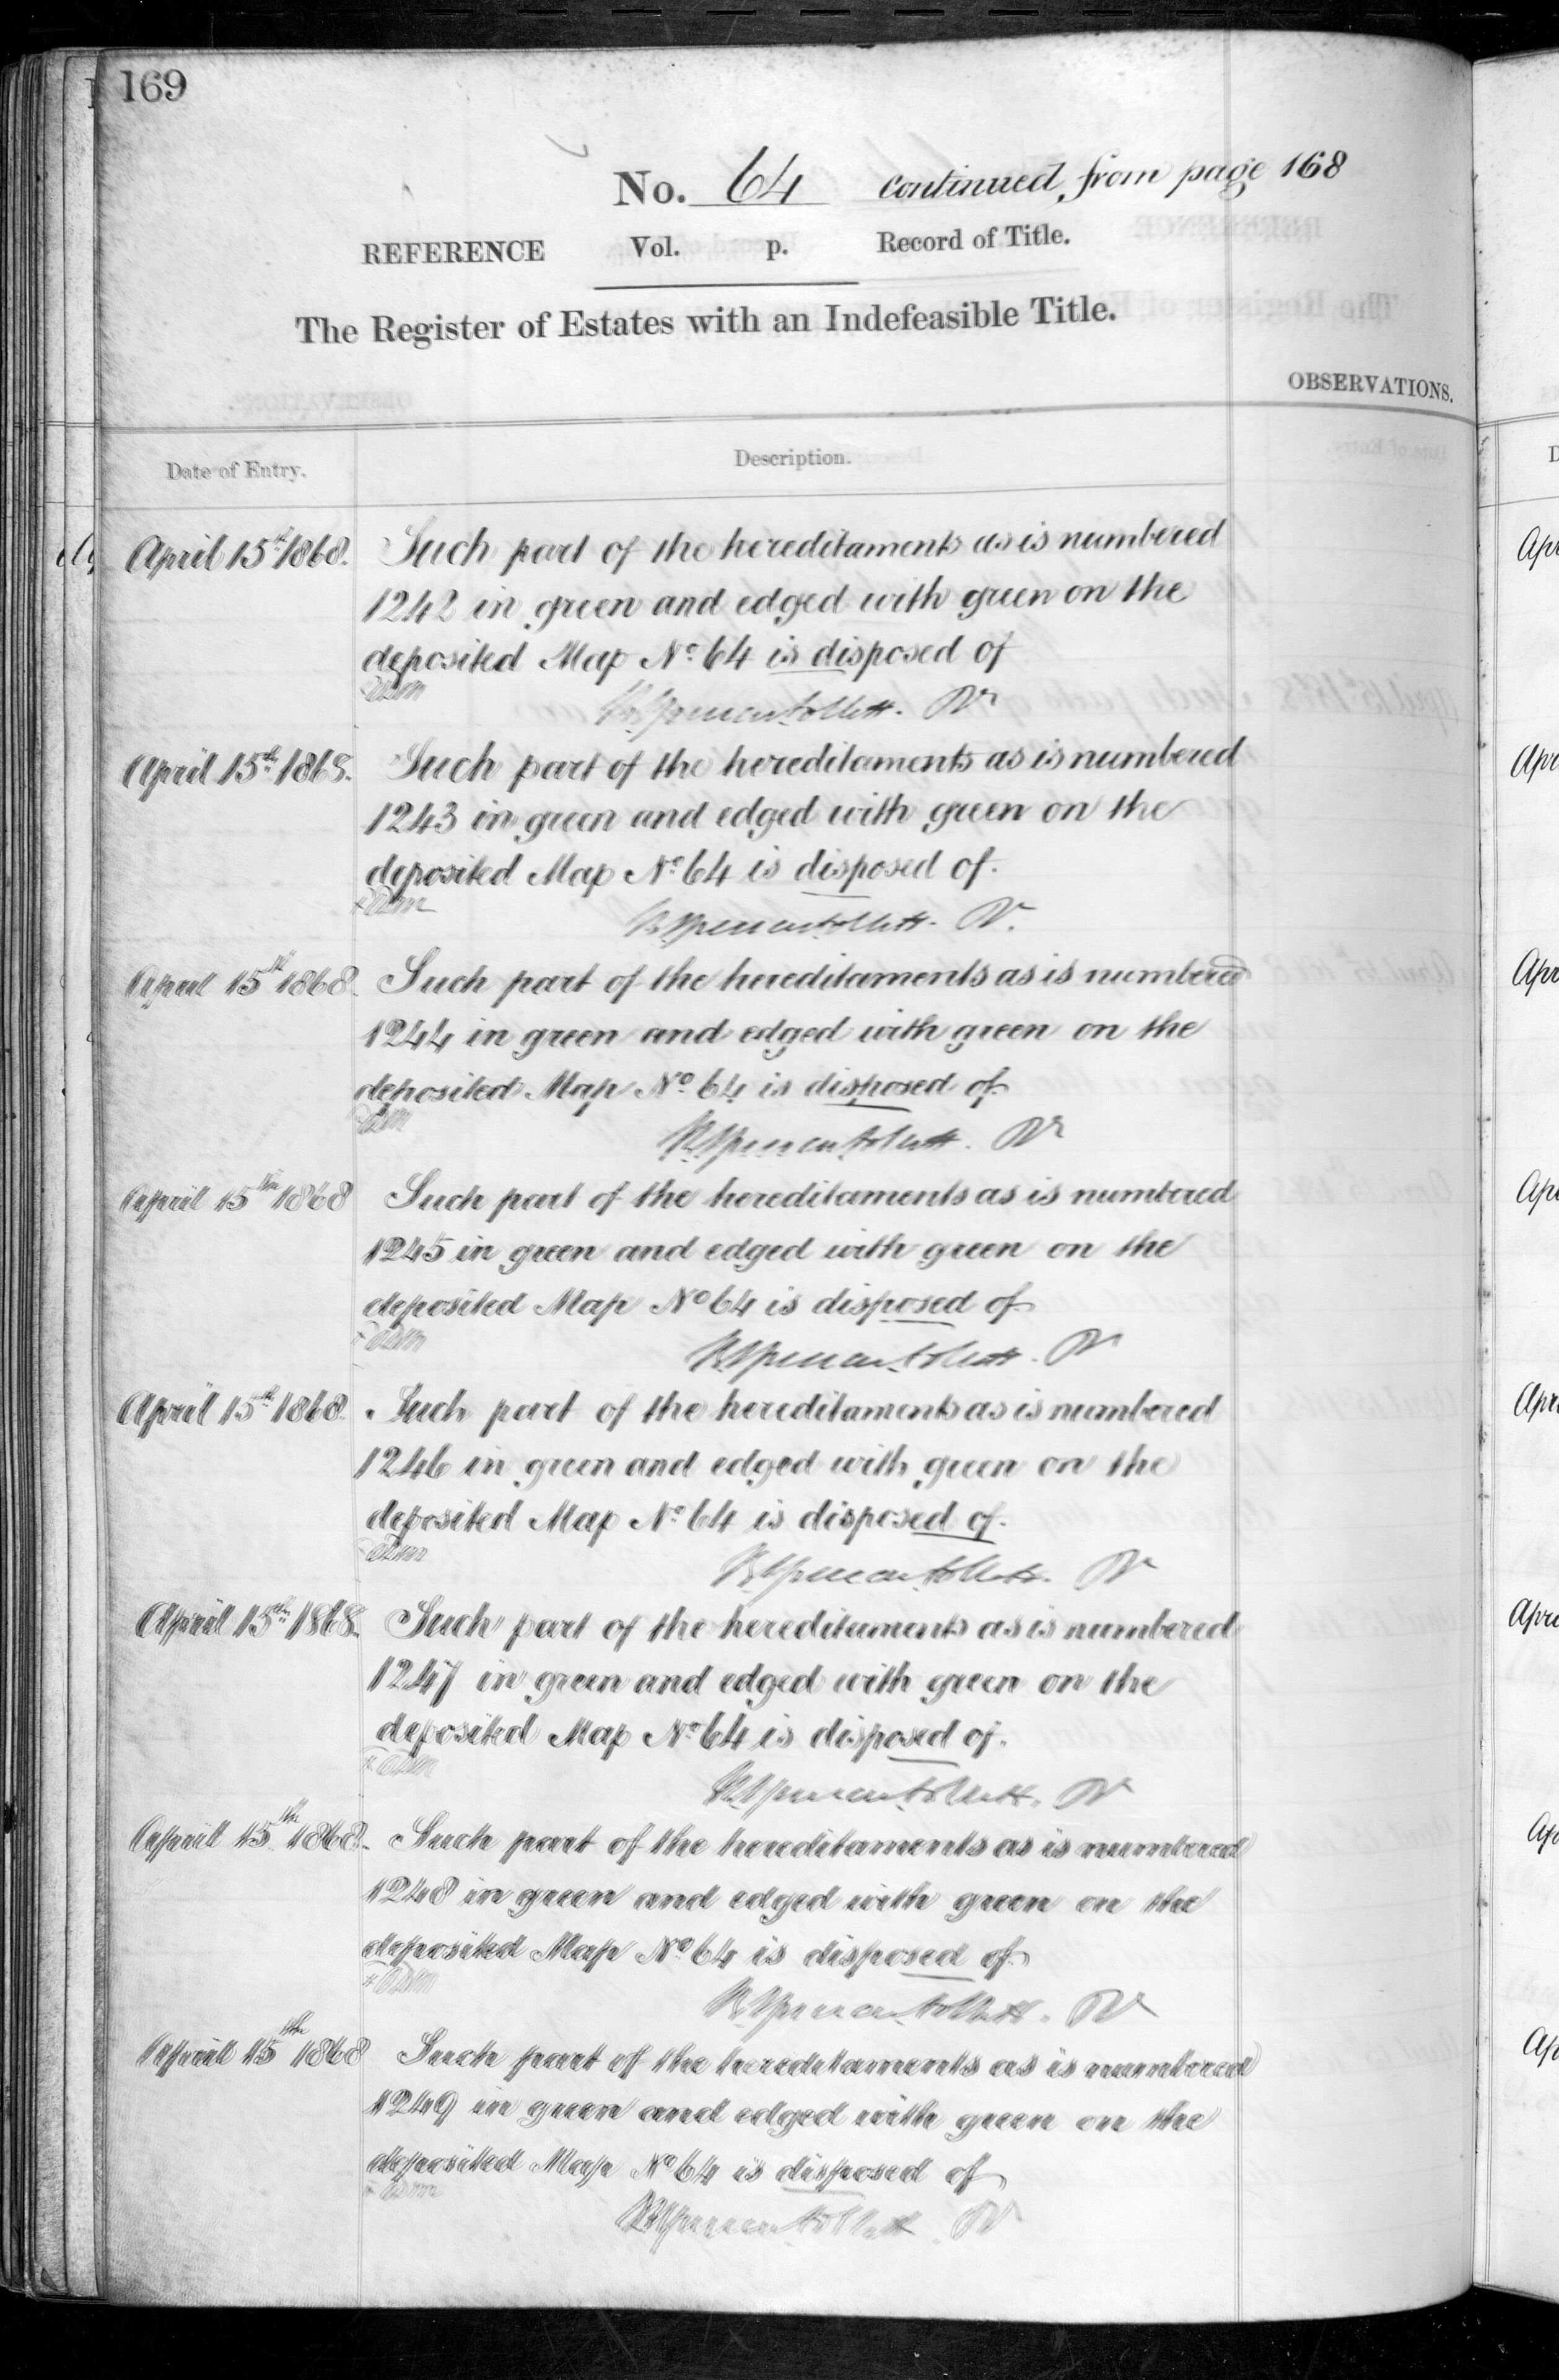 169
No. 64 continued from page 168
REFERENCE Vol. p. Record of Title.
The Register of Estates with an Indefeasible Title.
OBSERVATIONS.
Date of Entry. Description.
April 15th 1868. Such part of the hereditaments as is numbered
1242 in green and edged with green on the
deposited Map No 64 is disposed of
April 15th 1868. Such part of the hereditaments as is numbered
1243 in green and edged with green on the
deposited Map No 64 is disposed of.
April 15th 1868. Such part of the hereditaments as is numbered
1244 in green and edged with green on the
deposited Map No 64 is disposed of
April 15th 1868 Such part of the hereditaments as is numbered
1245 in green and edged with green on the
deposited Map No 64 is disposed of
April 15th 1868. Such part of the hereditaments as is numbered
1246 in green and edged with green on the
deposited Map No 64 is disposed of.
April 15th 1868. Such part of the hereditaments as is numbered
1247 in green and edged with green on the
deposited Map No 64 is disposed of.
April 15th 1868. Such part of the hereditaments as is numbered
1248 in green and edged with green on the
deposited Map No 64 is disposed of
April 15th 1868 Such part of the hereditaments as is numbered
1249 in green and edged with green on the
deposited Map No 64 is disposed of